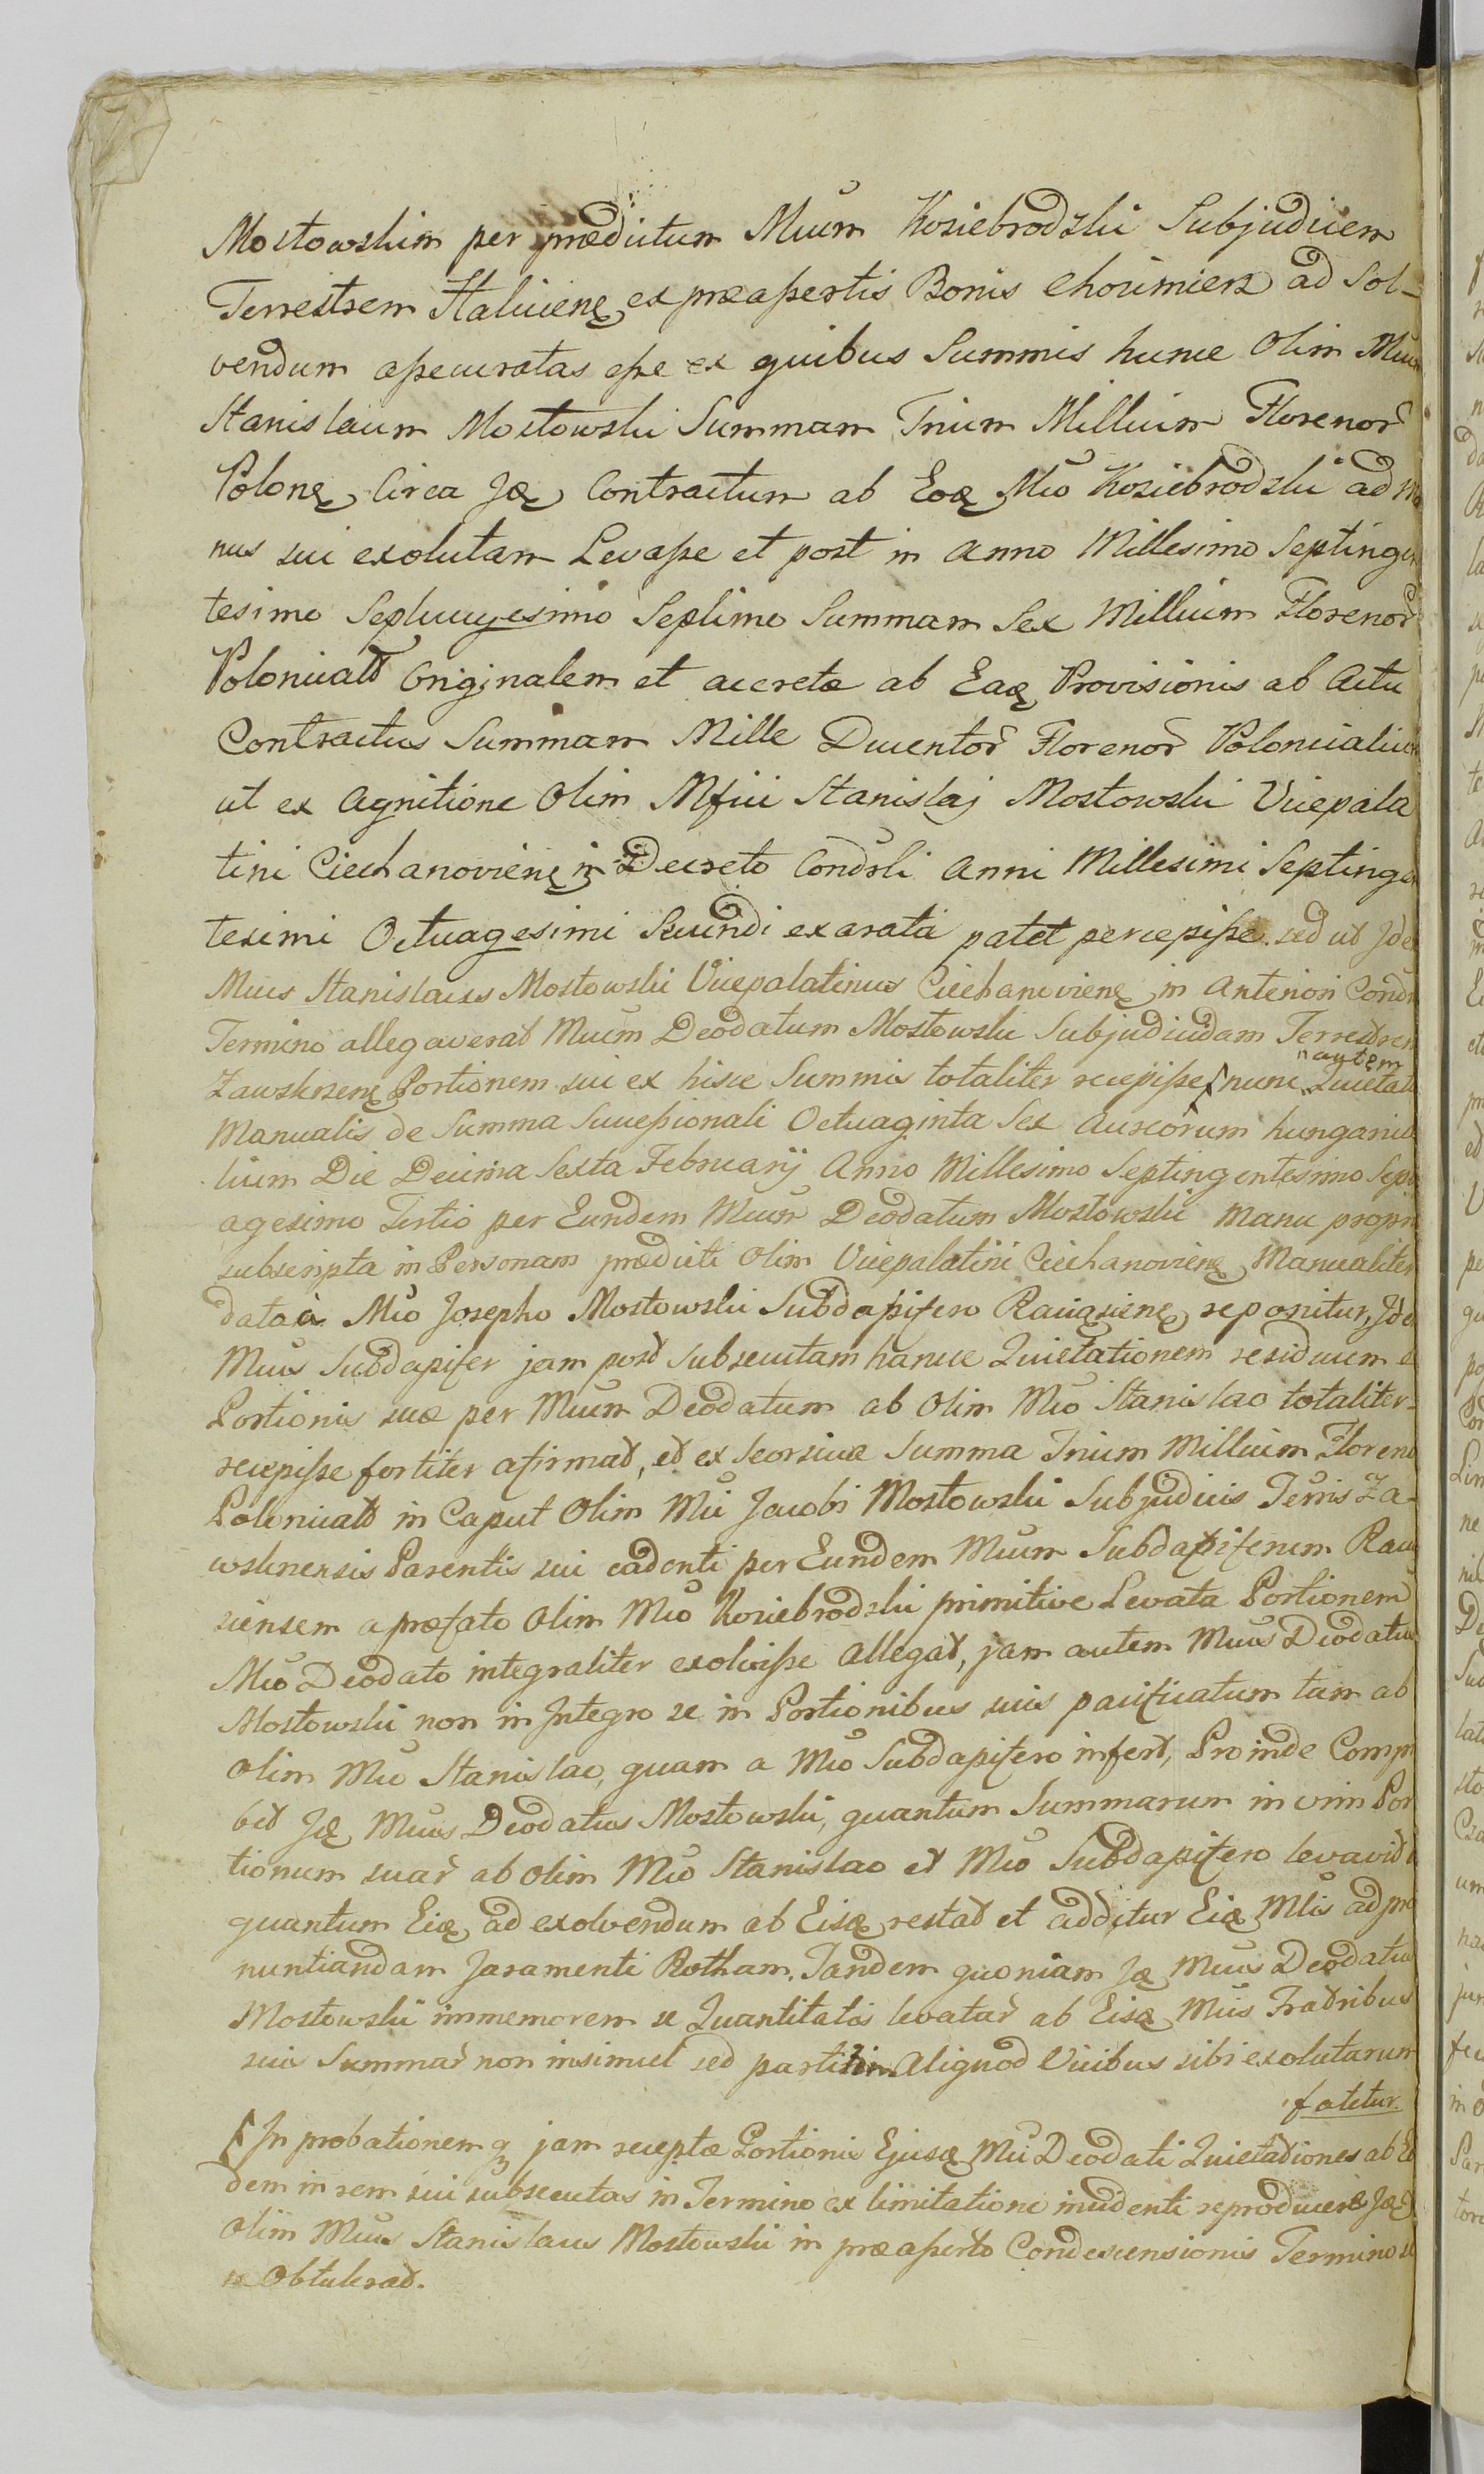 Mostowskim per prædictum Mūum Kosiebrodzki Subjudicem
Terrestrem Haliciens ex præapertis Bonis Chorimierz ad Sol-
vendum assecuratas esse ex quibus Summis hunce Olim Mūu
Stanislaum Mostowski Summam Trium Millium Florenor
Polons, Circa Jdę Contractum ab Eodę Mūo Kosiebrodzki ad ma
nus sui exolutam Levasse et post in anno Millesimo Septingen
tesimo Septuagesimo Septimo Summam Sex Millium Florenor
Polonicalt Originalem et accretæ ab Eadę Provisionis ab Actu
Contractus Summam Mille Ducentor Florenor Polonicaliu
ut ex Agnitione Olim Mfici Stanislaj Mostowski Vicepala
tini Ciechanoviens in Decreto Condrli Anni Millesimi Septingen
tesimi Octuagesimi Secundi exarata patet percepisse. sed ut Jde
Mūus Stanislaus Mostowski Vicepalatinus Ciechanoviens in Anteriori Condr
Termino allegaverat Mūum Deodatum Mostowski Subjudicidam Terrestrem
Zawskrzens Portionem sui ex hisce Summis totaliter recepisse, nunc autem Quietati
Manualis de Summa Successionali Octuaginta Sex Aureorum hungarica
lium Die Decima Sexta Februarij Anno Millesimo Septingentesimo Sept
agesimo Tertio per Eundem Mūum Deodatum Mostowski Manu propri
subscripta in Personam prædicti Olim Vicepalatini Ciechanoviens Manualiter
data à Mūo Josepho Mostowski Subdapifero Raciąziens reponitur, Jde
Mūus Subdapifer jam post subsecutam hancce Quietationem residuum e
Portionis suæ per Mūum Deodatum ab Olim Mūo Stanislao totaliter
recepisse fortiter afirmat, et ex seorsiva Summa Trium Millium Floreno
Polonicalt in Caput Olim Mūi Jacobi Mostowski Subjudicis Terris Za-
wskrzensis Parentis sui cadenti per Eundem Mūum Subdapiferum Raci
ziensem a præfato Olim Mūo Kosiebrodzki primitive Levata Portionem
Mūo Deodato integraliter exolvisse allegat, jam autem Mūus Deodatus
Mostowski non in Integro se in Portionibus suis pacificatum tam ab
Olim Mūo Stanislao, quam a Mūo Subdapifero infert, Proinde Compr
bit Jdę Mūus Deodatus Mostowski, quantum Summarum in vim Por
tionum suar ab olim Mūo Stanislao et Mūo Subdapifero levavit
quantum Eidę ad exolvendum ab Eisdę restat et additur Eidę Mtis ad pro
nuntiandam Juramenti Rotham. Tandem quoniam Jdę Mūus Deodatus
Mostowski immemorem se Quantitatis levatar ab Eisdę Mūis Fratribus
suis Summar non insimul sed partitim Aliquod Vicibus sibi exolutarum
fatetur.
In probationem q3 jam receptæ Portionis Ejusdę Mūi Deodati Quietationes ab Eo
dem in rem sui subsecutas in Termino ex limitatione incidenti reproducere Jdę
Olim Mūus Stanislaus Mostowski in præaperto Condescensionis Termino
se Obtulerat.